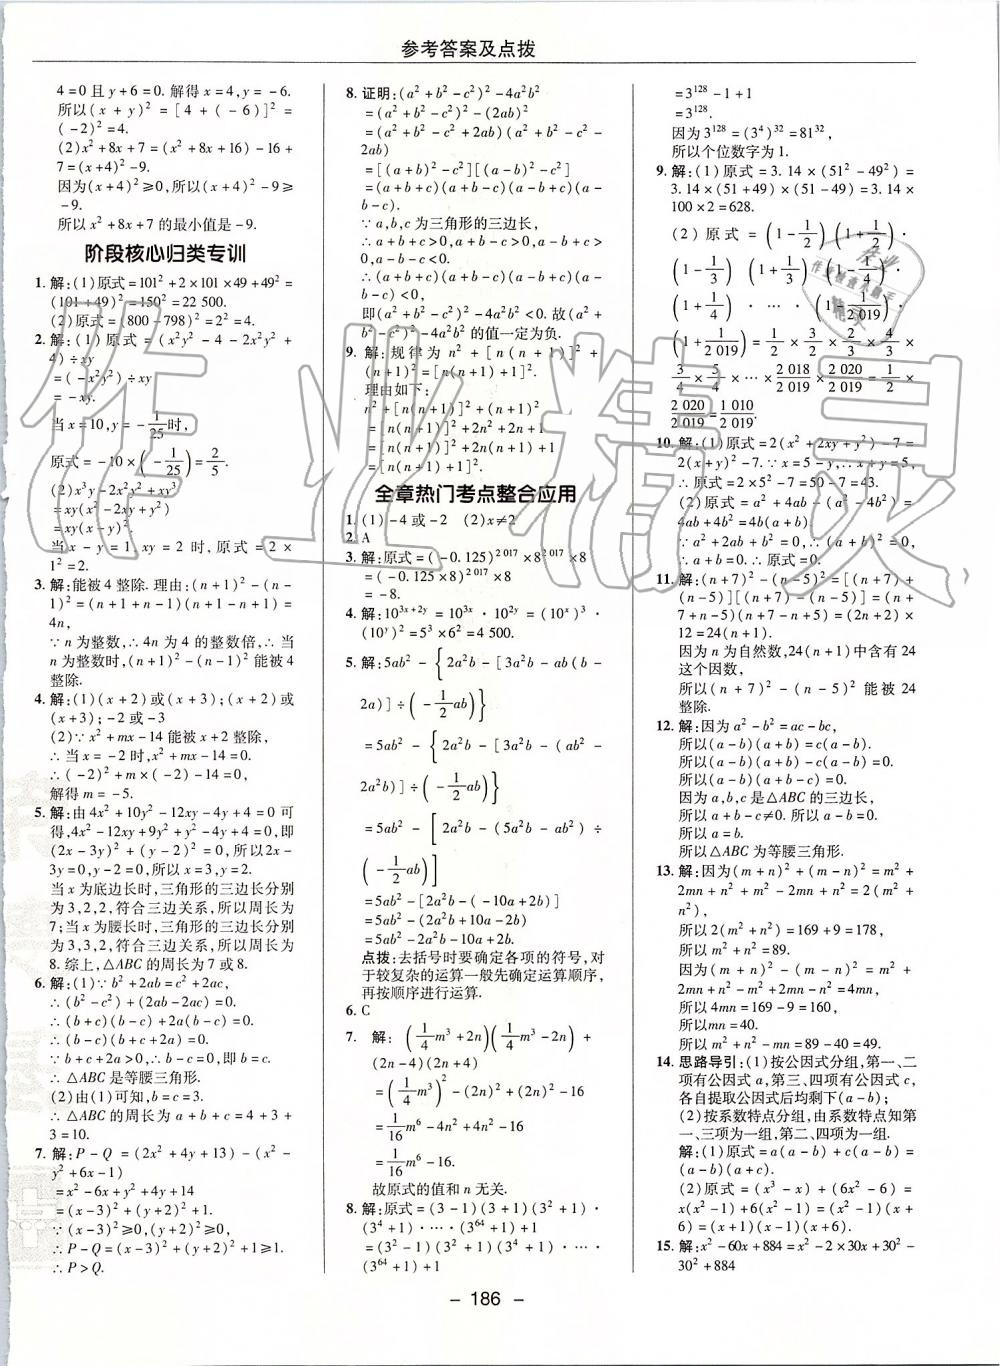 参考答案及点拨
4=0 且 y+6=0. 解得 x=4,y=-6.
所以(x+y)²=[4+(-6)]²=
(-2)²=4.
(2)x²+8x+7=(x²+8x+16)-16+
7=(x+4)²-9.
因为(x+4)²≥0,所以(x+4)²-9≥
-9.
所以 x²+8x+7 的最小值是-9.
阶段核心归类专训
1. 解:(1)原式=101²+2×101×49+49²=
(101+49)²=150²=22 500.
(2)原式=(800-798)²=2²=4.
2. 解:(1)原式=(x²y²-4-2x²y²+
4)÷xy
=(-x²y²)÷xy
=-xy.
当 x=10,y=-1/25时,
原式=-10×(-1/25)=2/5.
(2)x³y-2x²y²+xy³
=xy(x²-2xy+y²)
=xy(x-y)².
当 x-y=1,xy=2 时,原式=2×
1²=2.
3. 解:能被4整除. 理由:(n+1)²-(n-
1)²=(n+1+n-1)(n+1-n+1)=
4n,
∵n 为整数,∴4n 为 4 的整数倍,∴当
n为整数时,(n+1)²-(n-1)²能被4
整除.
4. 解:(1)(x+2)或(x+3);(x+2)或
(x+3);-2或-3
(2)∵x²+mx-14能被x+2整除,
∴当x=-2时,x²+mx-14=0,
∴(-2)²-2m-14=0,
解得 m=-5.
5. 解:由4x²+10y²-12xy-4y+4=0 可
得,4x²-12xy+9y²+y²-4y+4=0,即
(2x-3y)²+(y-2)²=0,所以2x-
3y=0,y-2=0,所以x=3,y=2.
当x为底边长时,三角形的三边长分别
为3,2,2,符合三边关系,所以周长为
7;当x为腰长时,三角形的三边长分别
为3,3,2,符合三边关系,所以周长为
8.综上,△ABC的周长为7或8.
6. 解:(1)∵b²+2ab=c²+2ac,
∴(b²-c²)+(2ab-2ac)=0.
∴(b+c)(b-c)+2a(b-c)=0.
∴(b-c)(b+c+2a)=0.
∵b+c+2a>0,∴b-c=0,即b=c.
∴△ABC是等腰三角形.
(2)由(1)可知,b=c=3.
∴△ABC的周长为a+b+c=4+3+
3=10.
7. 解:P-Q=(2x²+4y+13)-(x²-
y²+6x-1)
=x²-6x+y²+4y+14
=(x-3)²+(y+2)²+1.
∵(x-3)²≥0,(y+2)²≥0,
∴P-Q=(x-3)²+(y+2)²+1≥1.
∴P>Q.
8. 证明:(a²+b²-c²)²-4a²b²
=(a²+b²-c²)²-(2ab)²
=(a²+b²-c²+2ab)(a²+b²-c²-
2ab)
=[(a+b)²-c²][(a-b)²-c²]
=(a+b+c)(a+b-c)(a-b+c)(a-
b-c).
∵a,b,c为三角形的三边长,
∴a+b+c>0,a+b-c>0,a-b+
c>0,a-b-c<0.
∴(a+b+c)(a+b-c)(a-b+c)
(a-b-c)<0,
即(a²+b²-c²)²-4a²b²<0.故(a²+
b²-c²)²-4a²b²的值一定为负.
9. 解:规律为 n²+[n(n+1)]²+
(n+1)²=[n(n+1)+1]².
理由如下:
n²+[n(n+1)]²+(n+1)²
=[n(n+1)]²+2n²+2n+1
=[n(n+1)]²+2n(n+1)+1
=[n(n+1)+1]².
全章热门考点整合应用
1. (1)-4或-2 (2)x≠2
2. A
3. 解:原式=(-0.125)²⁰¹⁷×8²⁰¹⁷×8
=(-0.125×8)²⁰¹⁷×8
=-8.
4. 解:10³ˣ⁺²ʸ=10³ˣ·10²ʸ=(10ˣ)³·
(10ʸ)²=5³×6²=4 500.
5. 解:5ab²-{2a²b-[3a²b-ab(b-
2a)]÷(-1/2ab)}
=5ab²-{2a²b-[3a²b-(ab²-
2a²b)]÷(-1/2ab)}
=5ab²-[2a²b-(5a²b-ab²)÷
(-1/2ab)]
=5ab²-[2a²b-(-10a+2b)]
=5ab²-(2a²b+10a-2b)
=5ab²-2a²b-10a+2b.
点拨:去括号时要确定各项的符号,对
于较复杂的运算一般先确定运算顺序,
再按顺序进行运算.
6. C
7. 解:(1/4m³+2n)(1/4m³-2n)+
(2n-4)(2n+4)
=(1/4m³)²-(2n)²+(2n)²-16
=1/16m⁶-4n²+4n²-16
=1/16m⁶-16.
故原式的值和n无关.
8. 解:原式=(3-1)(3+1)(3²+1)·
(3⁴+1)·…·(3⁶⁴+1)+1
=(3²-1)(3²+1)(3⁴+1)·…·
(3⁶⁴+1)+1
=3¹²⁸-1+1
=3¹²⁸.
因为3¹²⁸=(3⁴)³²=81³²,
所以个位数字为1.
9. 解:(1)原式=3.14×(51²-49²)=
3.14×(51+49)×(51-49)=3.14×
100×2=628.
(2)原式=(1-1/2)(1+1/2)·
(1-1/3)(1+1/3)(1-1/4)·
(1+1/4)·…·(1-1/2 019)·
(1+1/2 019)=1/2×3/2×2/3×4/3×
3/4×5/4×…×2 018/2 019×2 020/2 019=1/2×
2 020/2 019=1 010/2 019.
10. 解:(1)原式=2(x²+2xy+y²)-7=
2(x+y)²-7.∵x=5-y,∴x+y=5,
∴原式=2×5²-7=50-7=43.
(2)原式=a²+4ab-(a²-4b²)=
4ab+4b²=4b(a+b).
∵a²+2ab+b²=0,∴(a+b)²=0,
∴a+b=0.∴原式=0.
11. 解:(n+7)²-(n-5)²=[(n+7)+
(n-5)][(n+7)-(n-5)]=(n+
7+n-5)(n+7-n+5)=(2n+2)×
12=24(n+1).
因为n为自然数,24(n+1)中含有24
这个因数,
所以(n+7)²-(n-5)²能被24
整除.
12. 解:因为a²-b²=ac-bc,
所以(a-b)(a+b)=c(a-b).
所以(a-b)(a+b)-c(a-b)=0.
所以(a-b)(a+b-c)=0.
因为a,b,c是△ABC的三边长,
所以a+b-c≠0.所以a-b=0.
所以a=b.
所以△ABC为等腰三角形.
13. 解:因为(m+n)²+(m-n)²=m²+
2mn+n²+m²-2mn+n²=2(m²+
n²),
所以2(m²+n²)=169+9=178,
所以m²+n²=89.
因为(m+n)²-(m-n)²=m²+
2mn+n²-m²+2mn-n²=4mn,
所以4mn=169-9=160,
所以mn=40.
所以m²+n²-mn=89-40=49.
14. 思路导引:(1)按公因式分组,第一、二
项有公因式a,第三、四项有公因式c,
各自提取公因式后均剩下(a-b);
(2)按系数特点分组,由系数特点知第
一、三项为一组,第二、四项为一组.
解:(1)原式=a(a-b)+c(a-b)=
(a-b)(a+c).
(2)原式=(x³-x)+(6x²-6)=
x(x²-1)+6(x²-1)=(x²-1)(x+
6)=(x+1)(x-1)(x+6).
15. 解:x²-60x+884=x²-2×30x+30²-
30²+884
- 186 -
作业精灵